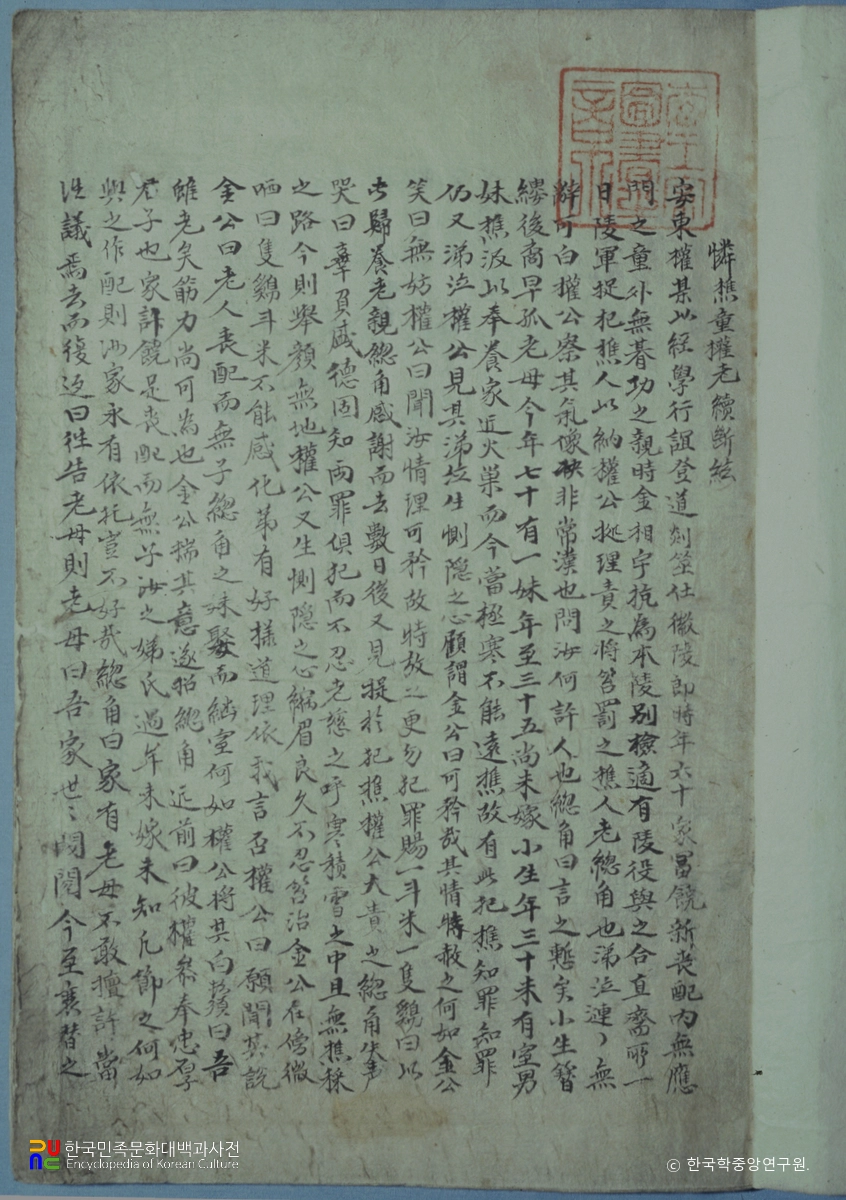 憐樵童權老續斷絃
安東權某以經學行誼登道剡筮仕徽陵郎時年六十家富饒新喪配內無應
門之童外無朞功之親時金相宇杭爲本陵別檢適有陵役與之合直齋所一
日陵軍捉犯樵人以納權公據理責之將笞罰之樵人老總角也涕泣漣漣無
辭可白權公察其氣像秧非常漢也問汝何許人也總角曰言之慙矣小生簪
纓後裔早孤老母今年七十有一妹年至三十五尚未嫁小生年三十未有室男
妹樵汲以奉養家近火巢而今當極寒不能遠樵故有此犯樵知罪知罪
仍又涕泣權公見其涕泣生惻隐之心顧謂金公曰可矜哉其情特赦之何如金公
笑曰無妨權公曰聞汝情理可矜故特放之更勿犯罪賜一斗米一隻鷄曰以
此歸養老親總角感謝而去數日後又見捉於犯樵權公大責之總角失聲
哭曰辜負盛德固知兩罪俱犯而不忍老慈之呼寒積雪之中且無樵採
之路今則擧顔無地權公又生惻隐之心縐眉良久不忍笞治金公在傍微
哂曰隻鷄斗米不能感化第有好樣道理依我言否權公曰願聞其說
金公曰老人喪配而無子總角之妹娶而繼室何如權公捋其白鬚曰吾
雖老矣筋力尚可爲也金公揣其意遂招總角近前曰彼權叅奉忠厚
君子也家計饒足喪配而無子汝之姊氏過年未嫁未知凡節之何如
與之作配則汝家永有依托豈不好哉總角曰家有老母不敢擅許當
往議焉去而復返曰往告老母則老母曰吾家世世閥閱今至衰替之
한국민족문화대백과사전
Encyclopedia of Korean Culture
© 한국학중앙연구원